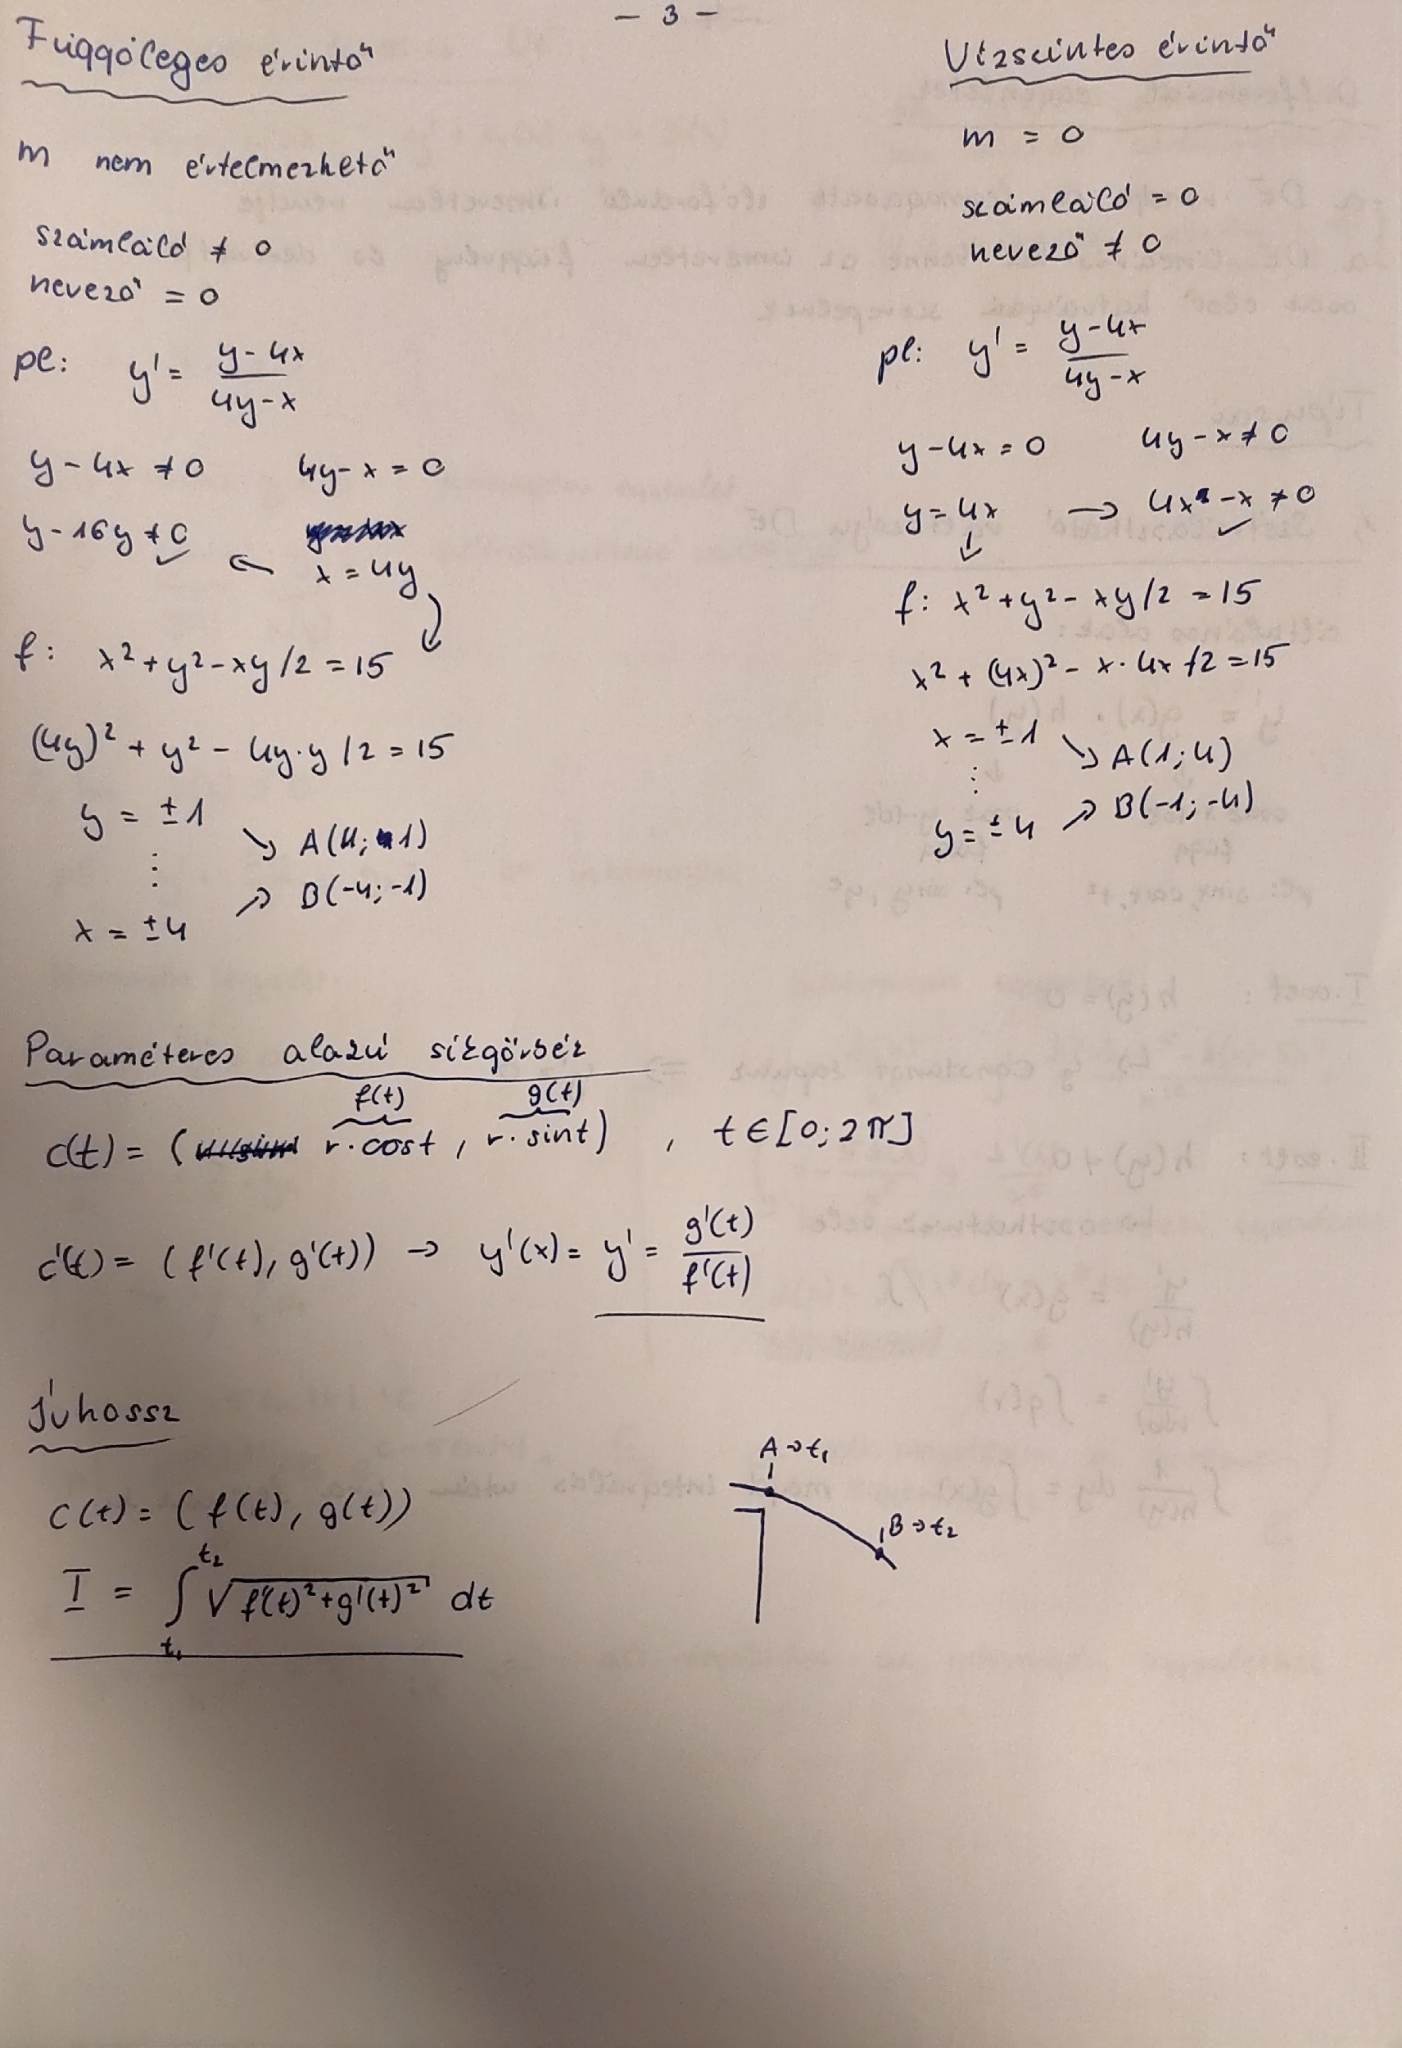 - 3 -
Függőleges érintő
m nem értelmezhető
számláló ≠ 0
nevező = 0
pl: y' = (y-4x)/(4y-x)
y-4x ≠ 0    4y-x = 0
y-16y ≠ 0 ✓ ← x = 4y
f: x²+y²-xy/2 = 15
(4y)² + y² - 4y·y/2 = 15
y = ±1
⋮
x = ±4
↘ A(4; 1)
↗ B(-4; -1)
Vízszintes érintő
m = 0
számláló = 0
nevező ≠ 0
pl: y' = (y-4x)/(4y-x)
y-4x = 0    4y-x ≠ 0
y = 4x → 4x-x ≠ 0 ✓
↓
f: x²+y²-xy/2 = 15
x² + (4x)² - x·4x/2 = 15
x = ±1
⋮
y = ±4
↘ A(1; 4)
↗ B(-1; -4)
Paraméteres alakú síkgörbék
f(t)    g(t)
c(t) = (r·cost, r·sint) , t∈[0; 2π]
c'(t) = (f'(t), g'(t)) → y'(x) = y' = g'(t)/f'(t)
Ívhossz
c(t) = (f(t), g(t))
I = ∫_{t₁}^{t₂} √(f'(t)²+g'(t)²) dt
A→t₁
B→t₂